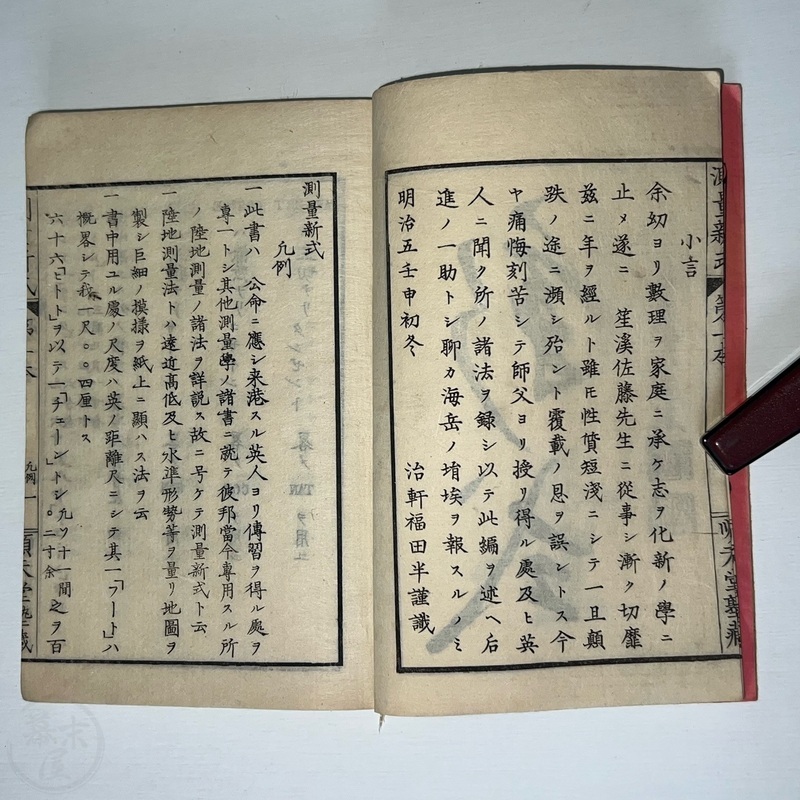 小言
余幼ヨリ數理ヲ家庭ニ承ケ志ヲ化新ノ學ニ
止メ遂ニ 笙溪佐藤先生ニ從事シ漸ク切靡
茲ニ年ヲ經ルト雖モ性質短淺ニシテ一旦顛
跌ノ途ニ瀕シ殆ント覆載ノ恩ヲ誤ントス今
ヤ痛悔刻苦シテ師父ヨリ授リ得ル處及ヒ英
人ニ聞ク所ノ諸法ヲ録シ以テ此編ヲ述ヘ后
進ノ一助トシ聊カ海岳ノ埃ヲ報スルノミ
明治五壬申初冬
治軒福田半謹識
測量新式
凡例
一此書ハ 公命ニ應シ来港スル英人ヨリ傳習ヲ得ル處ヲ
專一トシ其他測量學ノ諸書ニ就テ彼邦當今專用スル所
ノ陸地測量ノ諸法ヲ詳説ス故ニ号ケテ測量新式ト云
一陸地測量法トハ遠近高低及ヒ水準形勢等ヲ量リ地圖ヲ
製シ巨細ノ摸様ヲ紙上ニ顯ハス法ヲ云
一書中用ユル處ノ尺度ハ英ノ距離尺ニシテ其一「フート」ハ
概畧シテ我一尺〇〇四厘トス
六十六「ヒート」ヲ以テ一「チェーン」トシ凡ソ十一間〇二寸余之ヲ百
凡例 一
順天堂塾藏